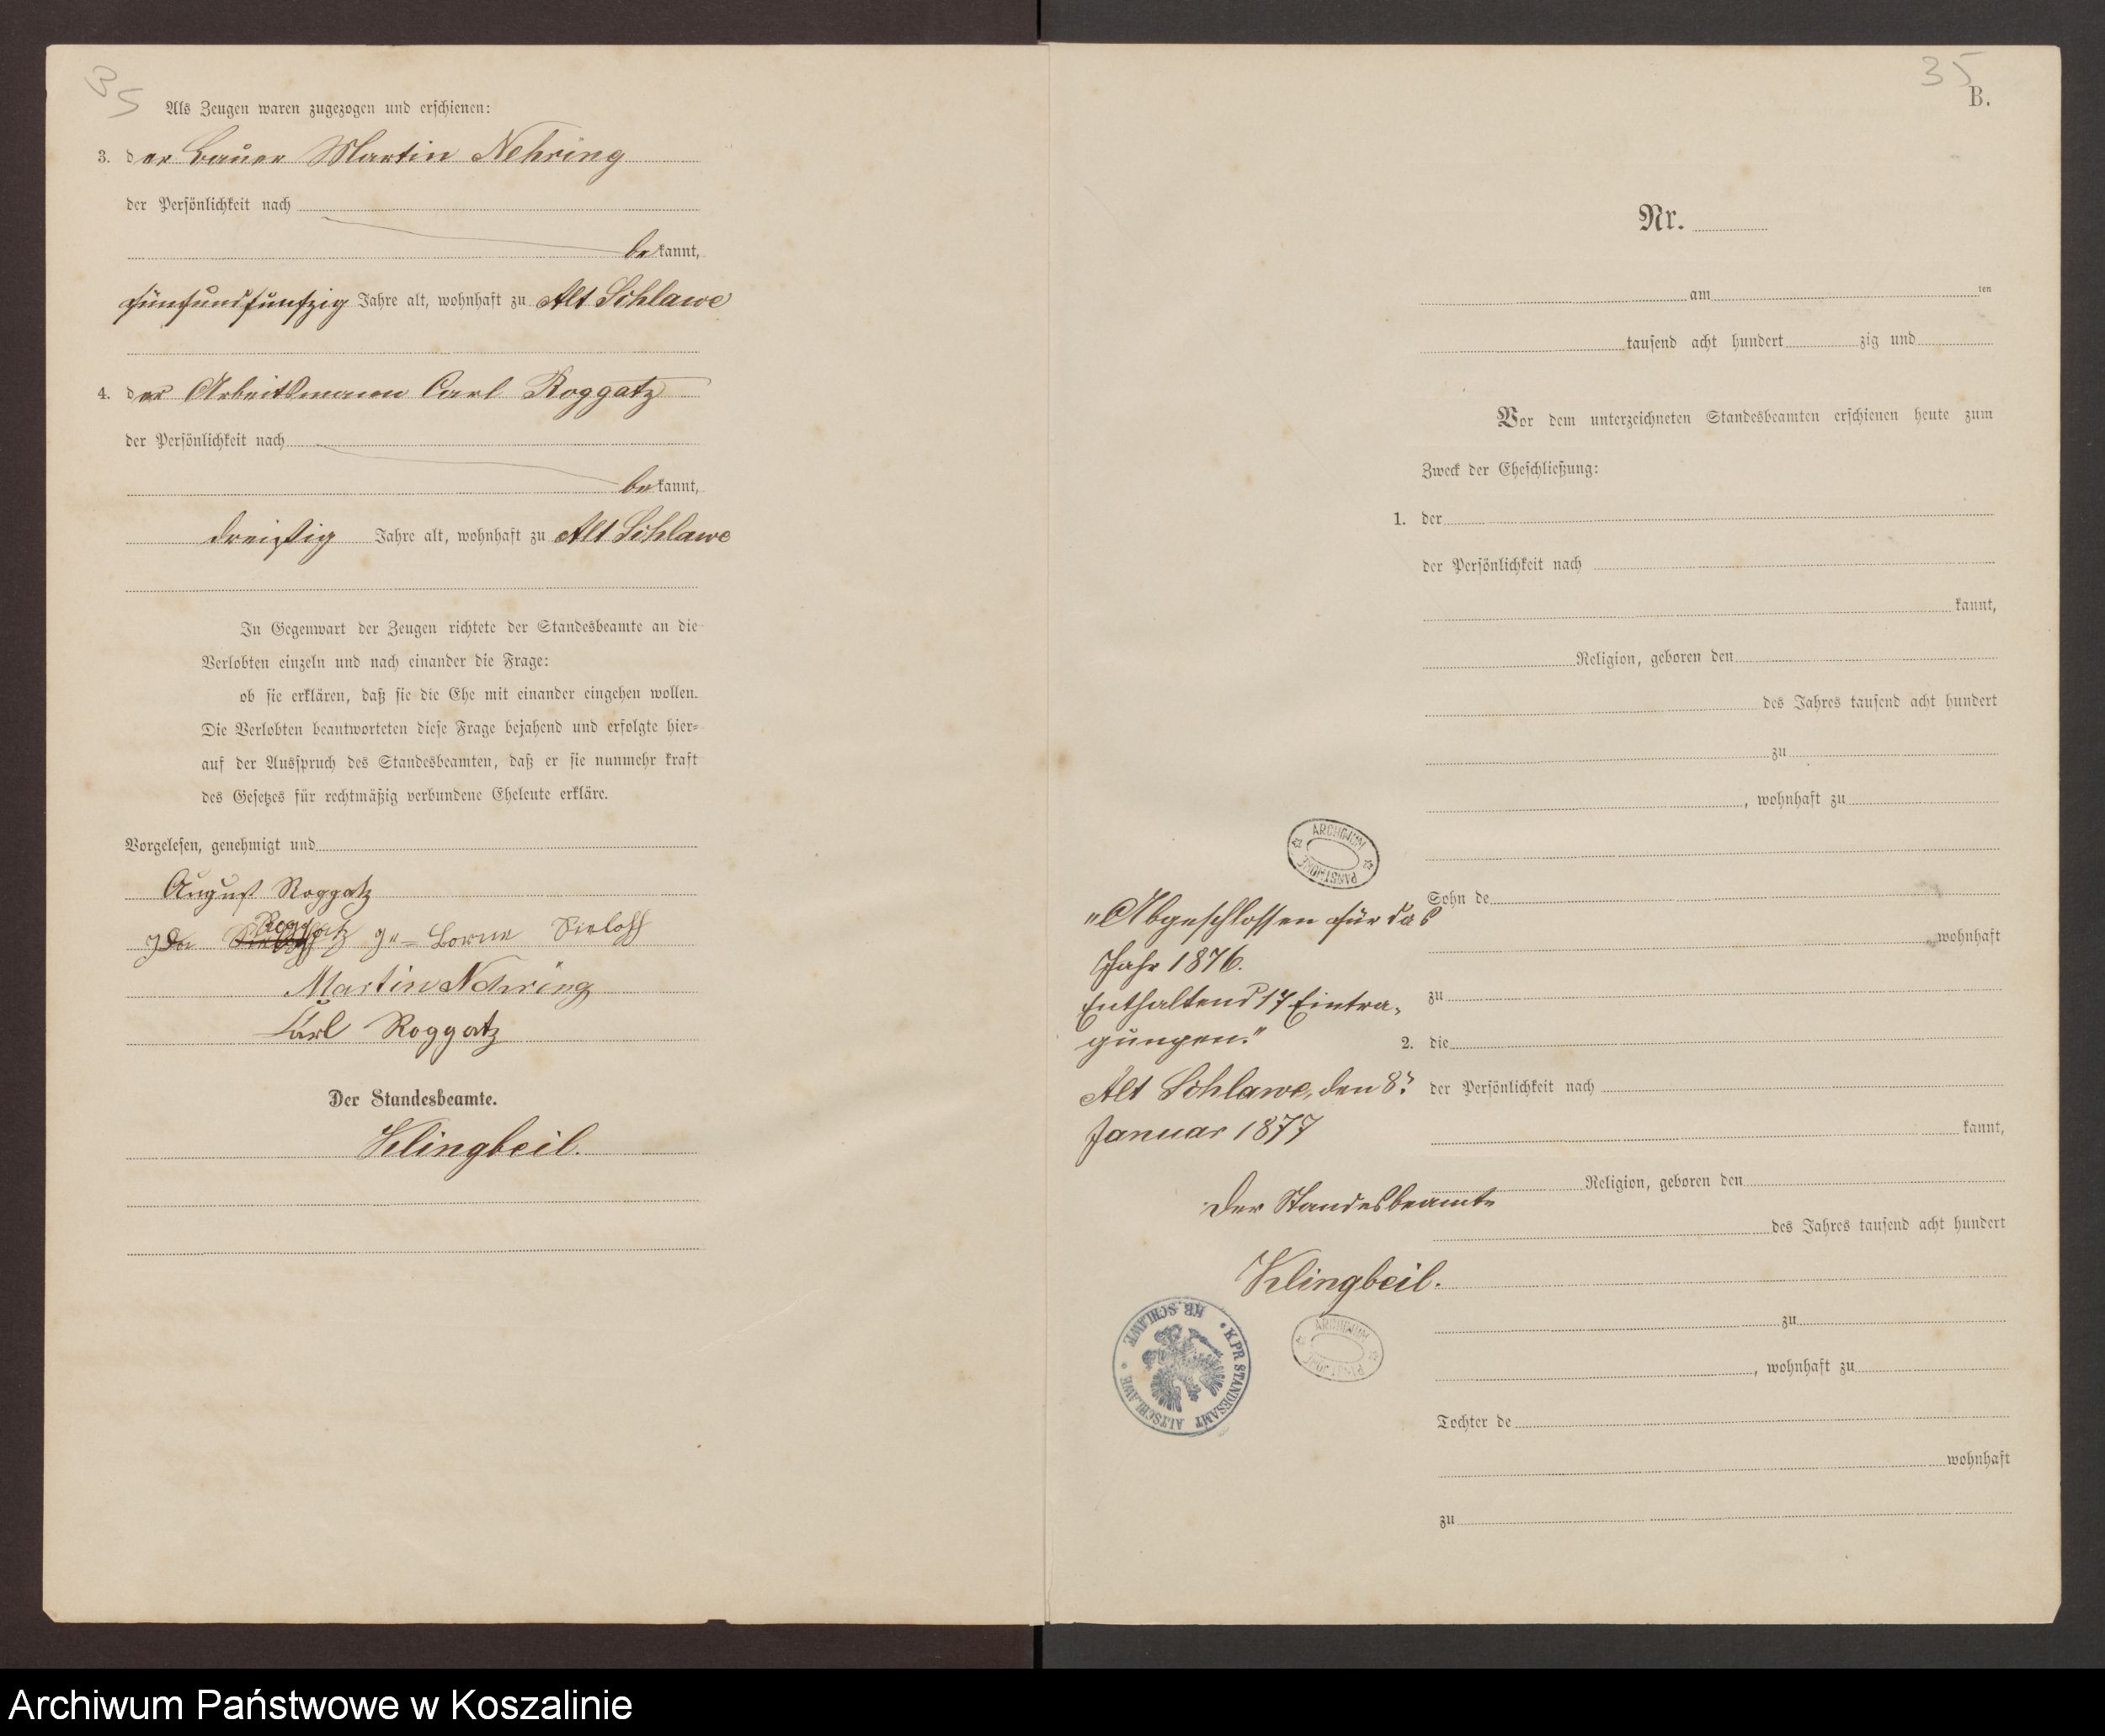 35
Als Zeugen waren zugezogen und erschienen:
3. der Bauer Martin Nehring
der Persönlichkeit nach
bekannt,
fünfundfünfzig Jahre alt, wohnhaft zu Alt Schlawe
4. der Arbeitsmann Carl Roggatz
der Persönlichkeit nach
bekannt,
dreißig Jahre alt, wohnhaft zu Alt Schlawe
In Gegenwart der Zeugen richtete der Standesbeamte an die
Verlobten einzeln und nach einander die Frage:
ob sie erklären, daß sie die Ehe mit einander eingehen wollen.
Die Verlobten beantworteten diese Frage bejahend und erfolgte hier=
auf der Ausspruch des Standesbeamten, daß er sie nunmehr kraft
des Gesetzes für rechtmäßig verbundene Eheleute erkläre.
Vorgelesen, genehmigt und
August Roggatz
Roggatz ge=borne Sieloff
Martin Nehring
Carl Roggatz
Der Standesbeamte.
Klingbeil.
35
B.
Nr.
am ten
tausend acht hundert zig und
Vor dem unterzeichneten Standesbeamten erschienen heute zum
Zweck der Eheschließung:
1. der
der Persönlichkeit nach
kannt,
Religion, geboren den
des Jahres tausend acht hundert
zu
, wohnhaft zu
Sohn de
wohnhaft
zu
2. die
der Persönlichkeit nach
kannt,
Religion, geboren den
des Jahres tausend acht hundert
zu
, wohnhaft zu
Tochter de
wohnhaft
zu
ARCHIWUM PAŃSTWOWE
"Abgeschlossen für das
Jahr 1876.
Enthaltend 17 Eintra-
gungen."
Alt Schlawe, den 8.
Januar 1877
Der Standesbeamte
Klingbeil.
K. PR. STANDESAMT ALTSCHLAWE * KR. SCHLAWE *
ARCHIWUM PAŃSTWOWE
Archiwum Państwowe w Koszalinie